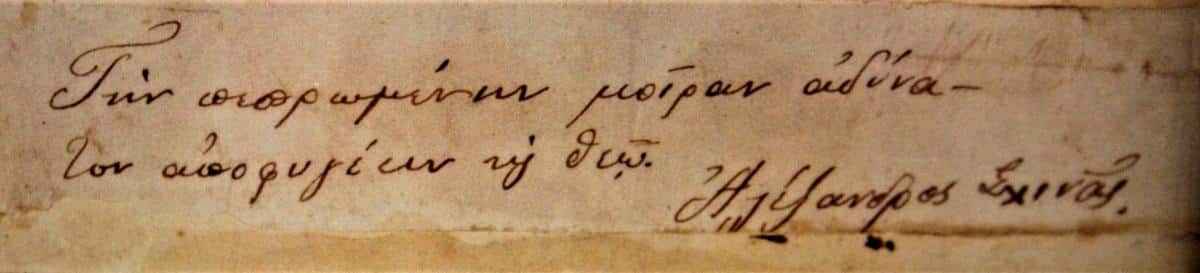 Τὴν πεπρωμένην μοῖραν ἀδύνα-
τον ἀποφυγέειν τῷ θεῷ.
Ἀλέξανδρος Σχινᾶς.